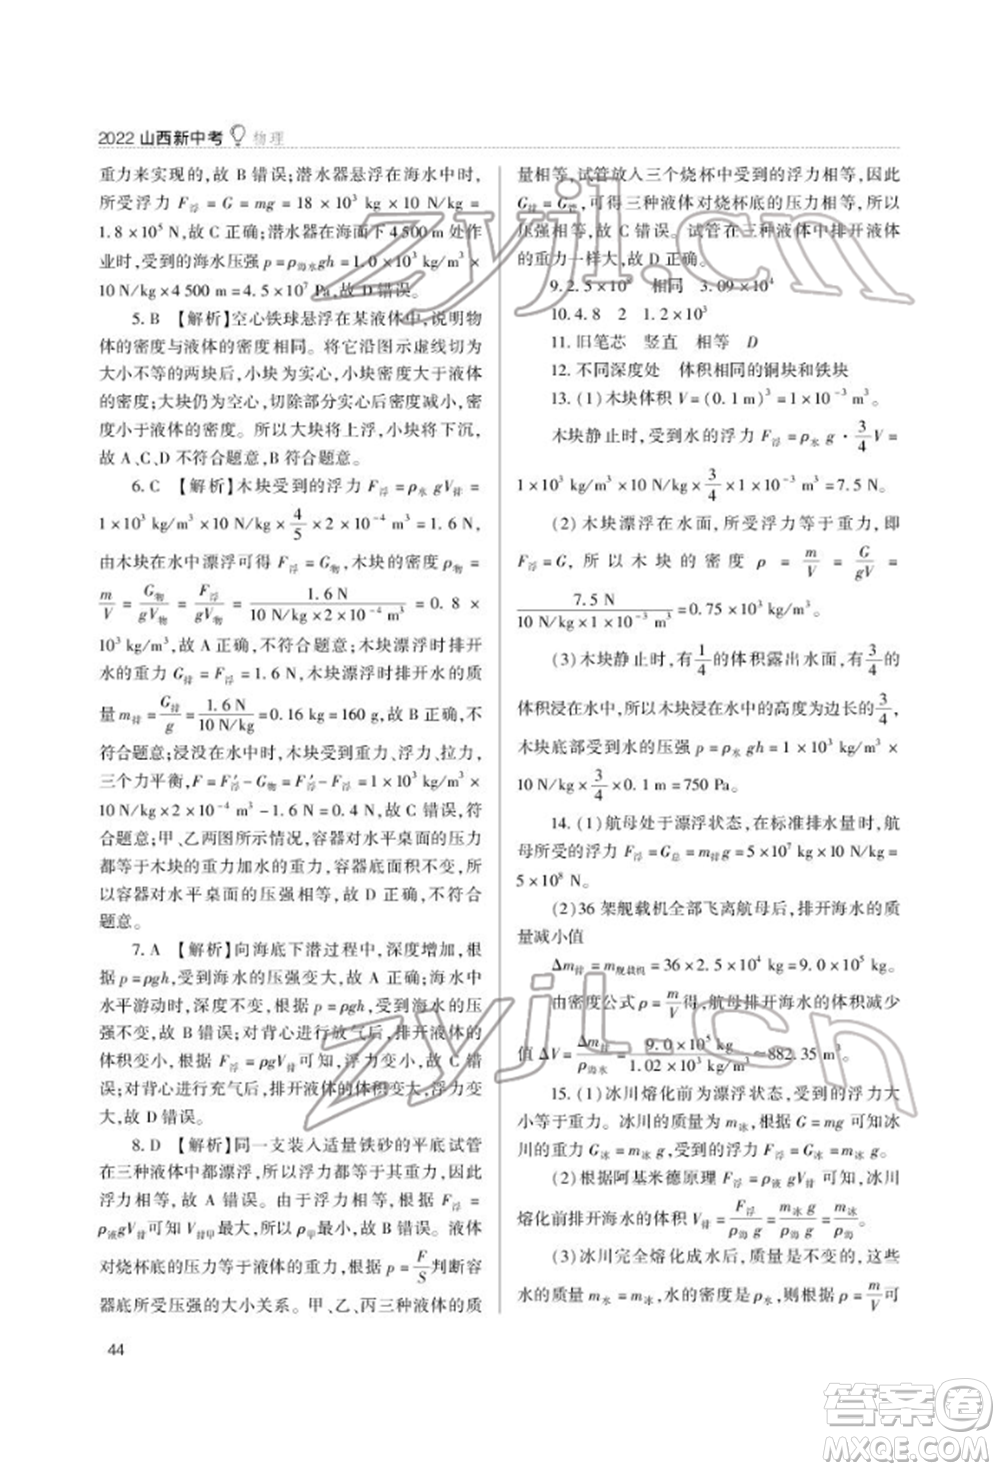 2022 山西新中考 物理
重力来实现的,故 B 错误;潜水器悬浮在海水中时,
所受浮力 F浮 = G = mg = 18 × 10³ kg × 10 N/kg =
1.8×10⁵ N,故 C 错误;潜水器在海面下 4 500 m 处作
业时,受到的海水压强 p=ρ海水gh=1.0×10³ kg/m³×
10 N/kg×4 500 m=4.5×10⁷ Pa,故 D 错误。
5. B 【解析】空心铁球悬浮在某液体中,说明物
体的密度与液体的密度相同。将它沿图示虚线切为
大小不等的两块后,小块为实心,小块密度大于液体
的密度;大块仍为空心,切除部分实心后密度减小,密
度小于液体的密度。所以大块将上浮,小块将下沉,
故 A、C、D 不符合题意,B 符合题意。
6. C 【解析】木块受到的浮力 F浮 = ρ水 gV排 =
1×10³ kg/m³×10 N/kg×4/5×2×10⁻⁴ m³=1.6 N,
由木块在水中漂浮可得 F浮 = G物,木块的密度 ρ物 =
m/V = G物/gV物 = F浮/gV物 = 1.6 N/(10 N/kg×2×10⁻⁴ m³) = 0.8 ×
10³ kg/m³,故 A 正确,不符合题意;木块漂浮时排开
水的重力 G排=F浮=1.6 N,木块漂浮时排开水的质
量 m排=G排/g=1.6 N/(10 N/kg)=0.16 kg=160 g,故 B 正确,不
符合题意;浸没在水中时,木块受到重力、浮力、拉力,
三个力平衡,F=F′浮-G物=F′浮-F浮=1×10³ kg/m³×
10 N/kg×2×10⁻⁴ m³-1.6 N=0.4 N,故 C 错误,符
合题意;甲、乙两图所示情况,容器对水平桌面的压力
都等于木块的重力加水的重力,容器底面积不变,所
以容器对水平桌面的压强相等,故 D 正确,不符合
题意。
7. A 【解析】向海底下潜过程中,深度增加,根
据 p=ρgh,受到海水的压强变大,故 A 正确;海水中
水平游动时,深度不变,根据 p=ρgh,受到海水的压
强不变,故 B 错误;对背心进行放气后,排开液体的
体积变小,根据 F浮 = ρgV排 可知,浮力变小,故 C 错
误;对背心进行充气后,排开液体的体积变大,浮力变
大,故 D 错误。
8. D 【解析】同一支装入适量铁砂的平底试管
在三种液体中都漂浮,浮力都等于其重力,因此
浮力相等,故 A 错误。由于浮力相等,根据 F浮 =
ρ液gV排可知 V排甲最大,所以 ρ甲最小,故 B 错误。液体
对烧杯底的压力等于液体的重力,根据 p=F/S判断容
器底所受压强的大小关系。甲、乙、丙三种液体的质
量相等,试管放入三个烧杯中受到的浮力相等,因此
G排=G管,可得三种液体对烧杯底的压力相等,所以
压强相等,故 C 错误。试管在三种液体中排开液体
的重力一样大,故 D 正确。
9. 2.5×10⁷ 相同 3.09×10⁴
10. 4.8 2 1.2×10³
11. 旧笔芯 竖直 相等 D
12. 不同深度处 体积相同的铜块和铁块
13. (1)木块体积 V=(0.1 m)³=1×10⁻³ m³。
木块静止时,受到水的浮力 F浮=ρ水 g·3/4V=
1×10³ kg/m³×10 N/kg×3/4×1×10⁻³ m³=7.5 N。
(2)木块漂浮在水面,所受浮力等于重力,即
F浮=G,所以木块的密度 ρ = m/V = G/gV =
7.5 N/(10 N/kg×1×10⁻³ m³)=0.75×10³ kg/m³。
(3)木块静止时,有1/4的体积露出水面,有3/4的
体积浸在水中,所以木块浸在水中的高度为边长的3/4,
木块底部受到水的压强 p=ρ水 gh=1×10³ kg/m³×
10 N/kg×3/4×0.1 m=750 Pa。
14. (1)航母处于漂浮状态,在标准排水量时,航
母所受的浮力 F浮=G总=m排g=5×10⁷ kg×10 N/kg=
5×10⁸ N。
(2)36 架舰载机全部飞离航母后,排开海水的质
量减小值
Δm排=m舰载机=36×2.5×10⁴ kg=9.0×10⁵ kg
由密度公式 ρ=m/V得,航母排开海水的体积减少
值 ΔV=Δm排/ρ海水=9.0×10⁵ kg/(1.02×10³ kg/m³)≈882.35 m³。
15. (1)冰川熔化前为漂浮状态,受到的浮力大
小等于重力。冰川的质量为 m冰,根据 G=mg 可知冰
川的重力 G冰=m冰g,受到的浮力 F浮=G冰=m冰g。
(2)根据阿基米德原理 F浮=ρ液 gV排可知,冰川
熔化前排开海水的体积 V排=F浮/ρ海 g=m冰 g/ρ海 g=m冰/ρ海。
(3)冰川完全熔化成水后,质量不变,熔化成
水的质量 m水=m冰,水的密度是 ρ水,则根据 ρ=m/V可
44
zyjl.cn
zyjl.cn
答案圈
MXQE.COM